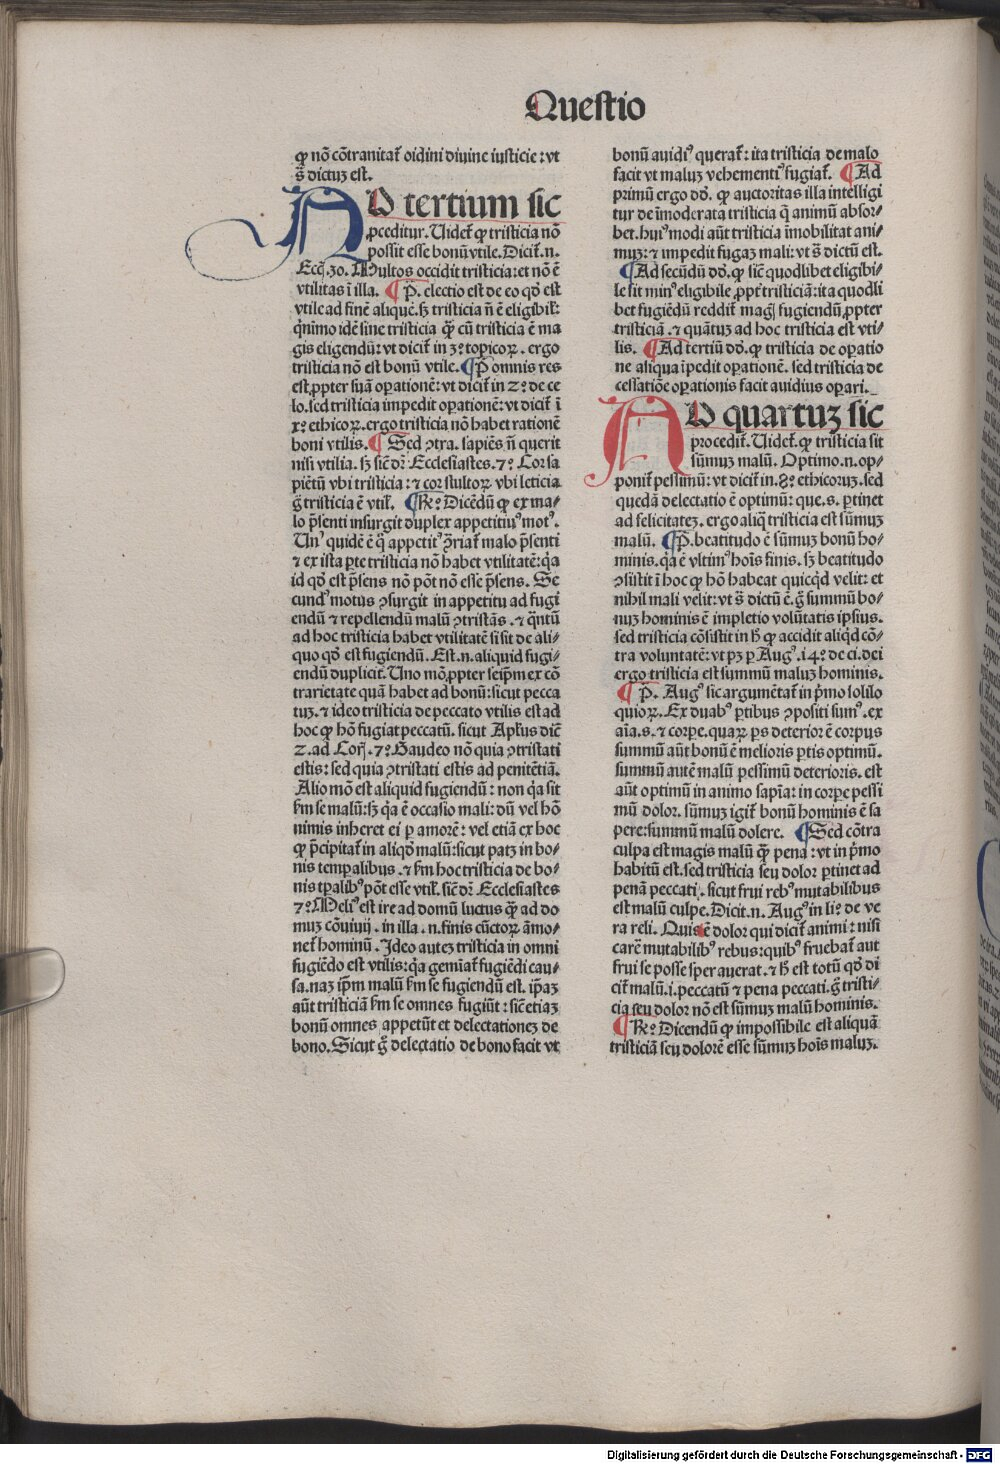 Questio
ꝙ nō cōtranitat᷑ oidini diuine iusticie : vt
s̄ dictuꝫ est.
AD tertium sic
ꝓceditur. Uidet᷑ ꝙ tristicia nō
possit esse bonū vtile. Dicit᷑.n.
Ecci.30. Multos occidit tristicia: et nō ē
vtilitas ī illa. ¶ P̄. electio est de eo qd̓ est
vtile ad finē aliquē. sꝫ tristicia n̄ ē eligibil᷑:
qͥnimo idē sine tristicia qͣꝫ cū tristicia ē ma
gis eligendū: vt dicit᷑ in 3º topicoꝝ. ergo
tristicia nō est bonū vtile. ¶ P̄ omnis res
est ꝓpter suā oꝑationē: vt dicit᷑ in 2º de ce
lo. sed tristicia impedit oꝑationē: vt dicit᷑ ī
xº ethicoꝝ. ergo tristicia nō habet rationē
boni vtilis. ¶ Sed ꝯtra. sapiēs n̄ querit
nisi vtilia. sꝫ sic̄ dr̄ Ecclesiastes.7º Cor sa
piētū vbi tristicia : ⁊ cor stultoꝝ vbi leticia
g̊ tristicia ē vtil᷑. ¶ Rº Dicēdū ꝙ ex ma-
lo p̄senti insurgit duplex appetitiuꝰ motꝰ.
Unꝰ quidē ē q̄ appetitꝰ ꝯͬriat᷑ malo p̄senti
⁊ ex ista ꝑte tristicia nō habet vtilitatē: qͥa
id qd̓ est p̄sens nō pōt nō esse p̄sens. Se
cundꝰ motus ꝯsurgit in appetitu ad fugi
endū ⁊ repellendū malū ꝯtristās. ⁊ qͣntū
ad hoc tristicia habet vtilitatē si sit de ali-
quo qd̓ est fugiendū. Est.n. aliquid fugi-
endū duplicit᷑. Uno mō ꝓpter seip̄m ex cō
trarietate quā habet ad bonū: sicut pecca
tuꝫ. ⁊ ideo tristicia de peccato vtilis est ad
hoc ꝙ hō fugiat peccatū. sicut Apl̓us dic̄
2. ad Corͥ.7º Gaudeo nō quia ꝯtristati
estis: sed quia ꝯtristati estis ad penitētiā.
Alio mō est aliquid fugiendū : non qͥa sit
s̄m se malū: sꝫ qͥa ē occasio mali: dū vel hō
nimis inheret ei ꝑ amorē: vel etiā ex hoc
ꝙ p̄cipitat᷑ in aliqd̓ malū: sicut patꝫ in bo-
nis temꝑalibus. ⁊ s̄m hoc tristicia de bo-
nis tꝑalibꝰ pōt esse vtil᷑. sic̄ dr̄ Ecclesiastes
7º Meliꝰ est ire ad domū luctus qͣꝫ ad do
muꝫ cōuiuij. in illa.n. finis cūctoꝝ āmo-
net᷑ hominū. Ideo auteꝫ tristicia in omni
fugiēdo est vtilis: qͥa gemīat᷑ fugiēdi cau-
sa. naꝫ ip̄m malū s̄m se fugiendū est. ip̄aꝫ
aūt tristiciā s̄m se omnes fugiūt : sic̄ etiaꝫ
bonū omnes appetūt et delectationeꝫ de
bono. Sicut g̊ delectatio de bono facit vt
bonū auidiꝰ querat᷑: ita tristicia de malo
facit vt maluꝫ vehementiꝰ fugiat᷑. ¶ Ad
primū ergo dd̓. ꝙ auctoritas illa intelligi
tur de īmoderata tristicia q̄ animū absor-
bet. huiꝰmodi aūt tristicia īmobilitat ani-
muꝫ: ⁊ impedit fugaꝫ mali: vt s̄ dictū est.
¶ Ad secūdū dd̓. ꝙ sic̄ quodlibet eligibi-
le fit minꝰ eligibile ꝓpt᷑ tristiciā: ita quodli
bet fugiēdū reddit᷑ magͥ fugiendū ꝓpter
tristiciā. ⁊ quātuꝫ ad hoc tristicia est vti-
lis. ¶ Ad tertiū dd̓. ꝙ tristicia de oꝑatio
ne aliqua īpedit oꝑationē. sed tristicia de
cessatiōe oꝑationis facit auidius oꝑari.
AD quartuꝫ sic
procedit᷑. Uidet᷑. ꝙ tristicia sit
sūmuꝫ malū. Optimo.n. op-
ponit᷑ pessimū: vt dicit᷑ in.8º ethicoruꝫ. sed
quedā delectatio ē optimū: que.s. ꝑtinet
ad felicitateꝫ. ergo aliq̄ tristicia est sūmuꝫ
malū. ¶ P̄. beatitudo ē sūmuꝫ bonū ho-
minis. qͥa ē vltimꝰ hoīs finis. sꝫ beatitudo
ꝯsistit ī hoc ꝙ hō habeat quicqͥd velit: et
nihil mali velit: vt s̄ dictū ē. g̊ summū bo-
nuꝫ hominis ē impletio volūtatis ipsius.
sed tristicia cōsistit in hͦ ꝙ accidit aliqͥd cō-
tra voluntatē: vt pꝫ ꝑ Augꝰ.14º de ci. dei
ergo tristicia est summū maluꝫ hominis.
¶ P̄. Augꝰ sic argumētat᷑ in pͥmo solilo
quioꝝ. Ex duabꝰ ꝑtibus ꝯpositi sumꝰ. ex
aīa.s. ⁊ corꝑe. quaꝝ ꝑs deterior ē corpus
summū aūt bonū ē melioris ꝑtis optimū.
summū autē malū pessimū deterioris. est
aūt optimū in animo sapīa: in corꝑe pessi
mū dolor. sūmuꝫ igit᷑ bonū hominis ē sa
pere: summū malū dolere. ¶ Sed cōtra
culpa est magis malū qͣꝫ pena : vt in pͥmo
habitū est. sed tristicia seu dolor ꝑtinet ad
penā peccati. sicut frui rebꝰ mutabilibus
est malū culpe. Dicit.n. Augꝰ in liº de ve
ra reli. Quis ē dolor qui dicit᷑ animi : nisi
carēr mutabilibꝰ rebus: quibꝰ fruebat᷑ aut
frui se posse speraverat. ⁊ hͦ est totū qd̓ di
cit᷑ malū.i. peccatū ⁊ pena peccati. g̊ tristi-
cia seu dolor nō est sūmuꝫ malū hominis.
¶ Rº Dicendū ꝙ impossibile est aliquā
tristiciā seu dolorē esse sūmuꝫ hoīs maluꝫ.
Digitalisierung gefördert durch die Deutsche Forschungsgemeinschaft - DFG